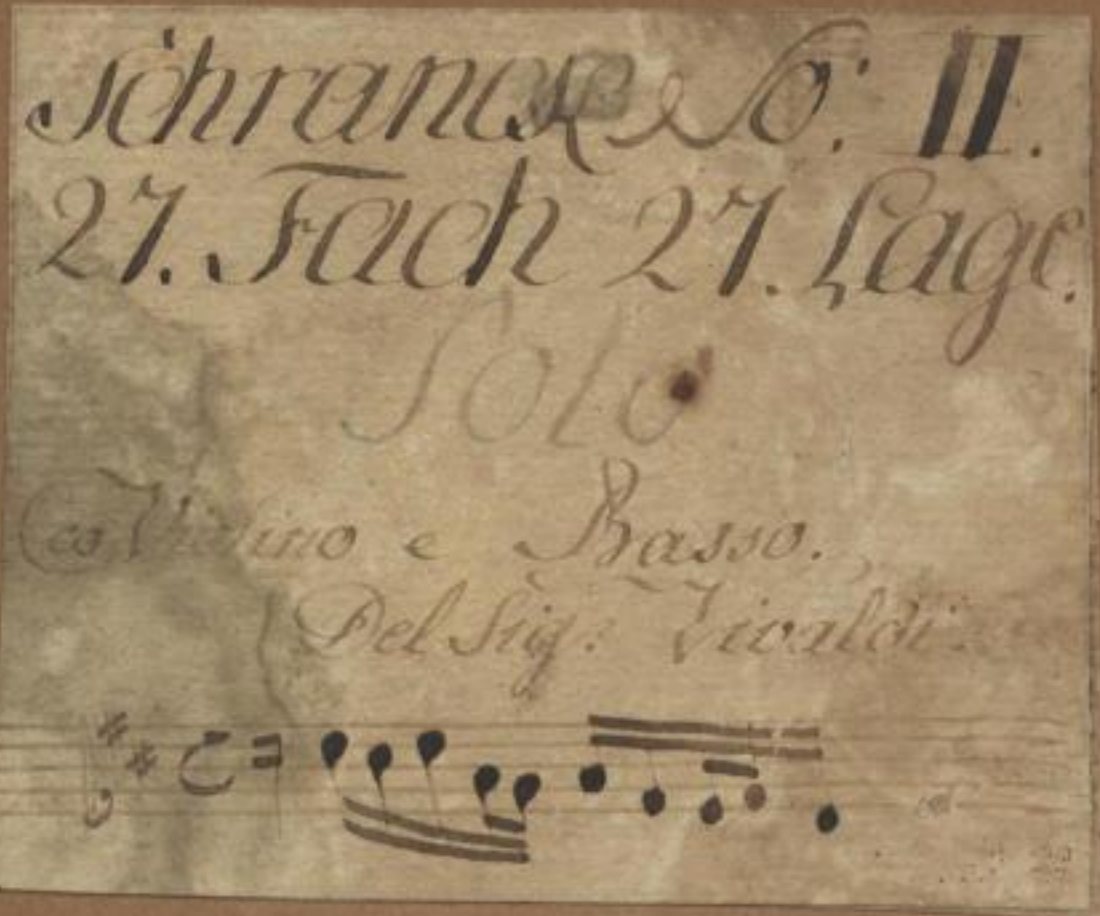 Schranck No: II.
27. Fach 27. Lage.
Solo
co Violino e Basso.
Del Sig: Vivaldi.